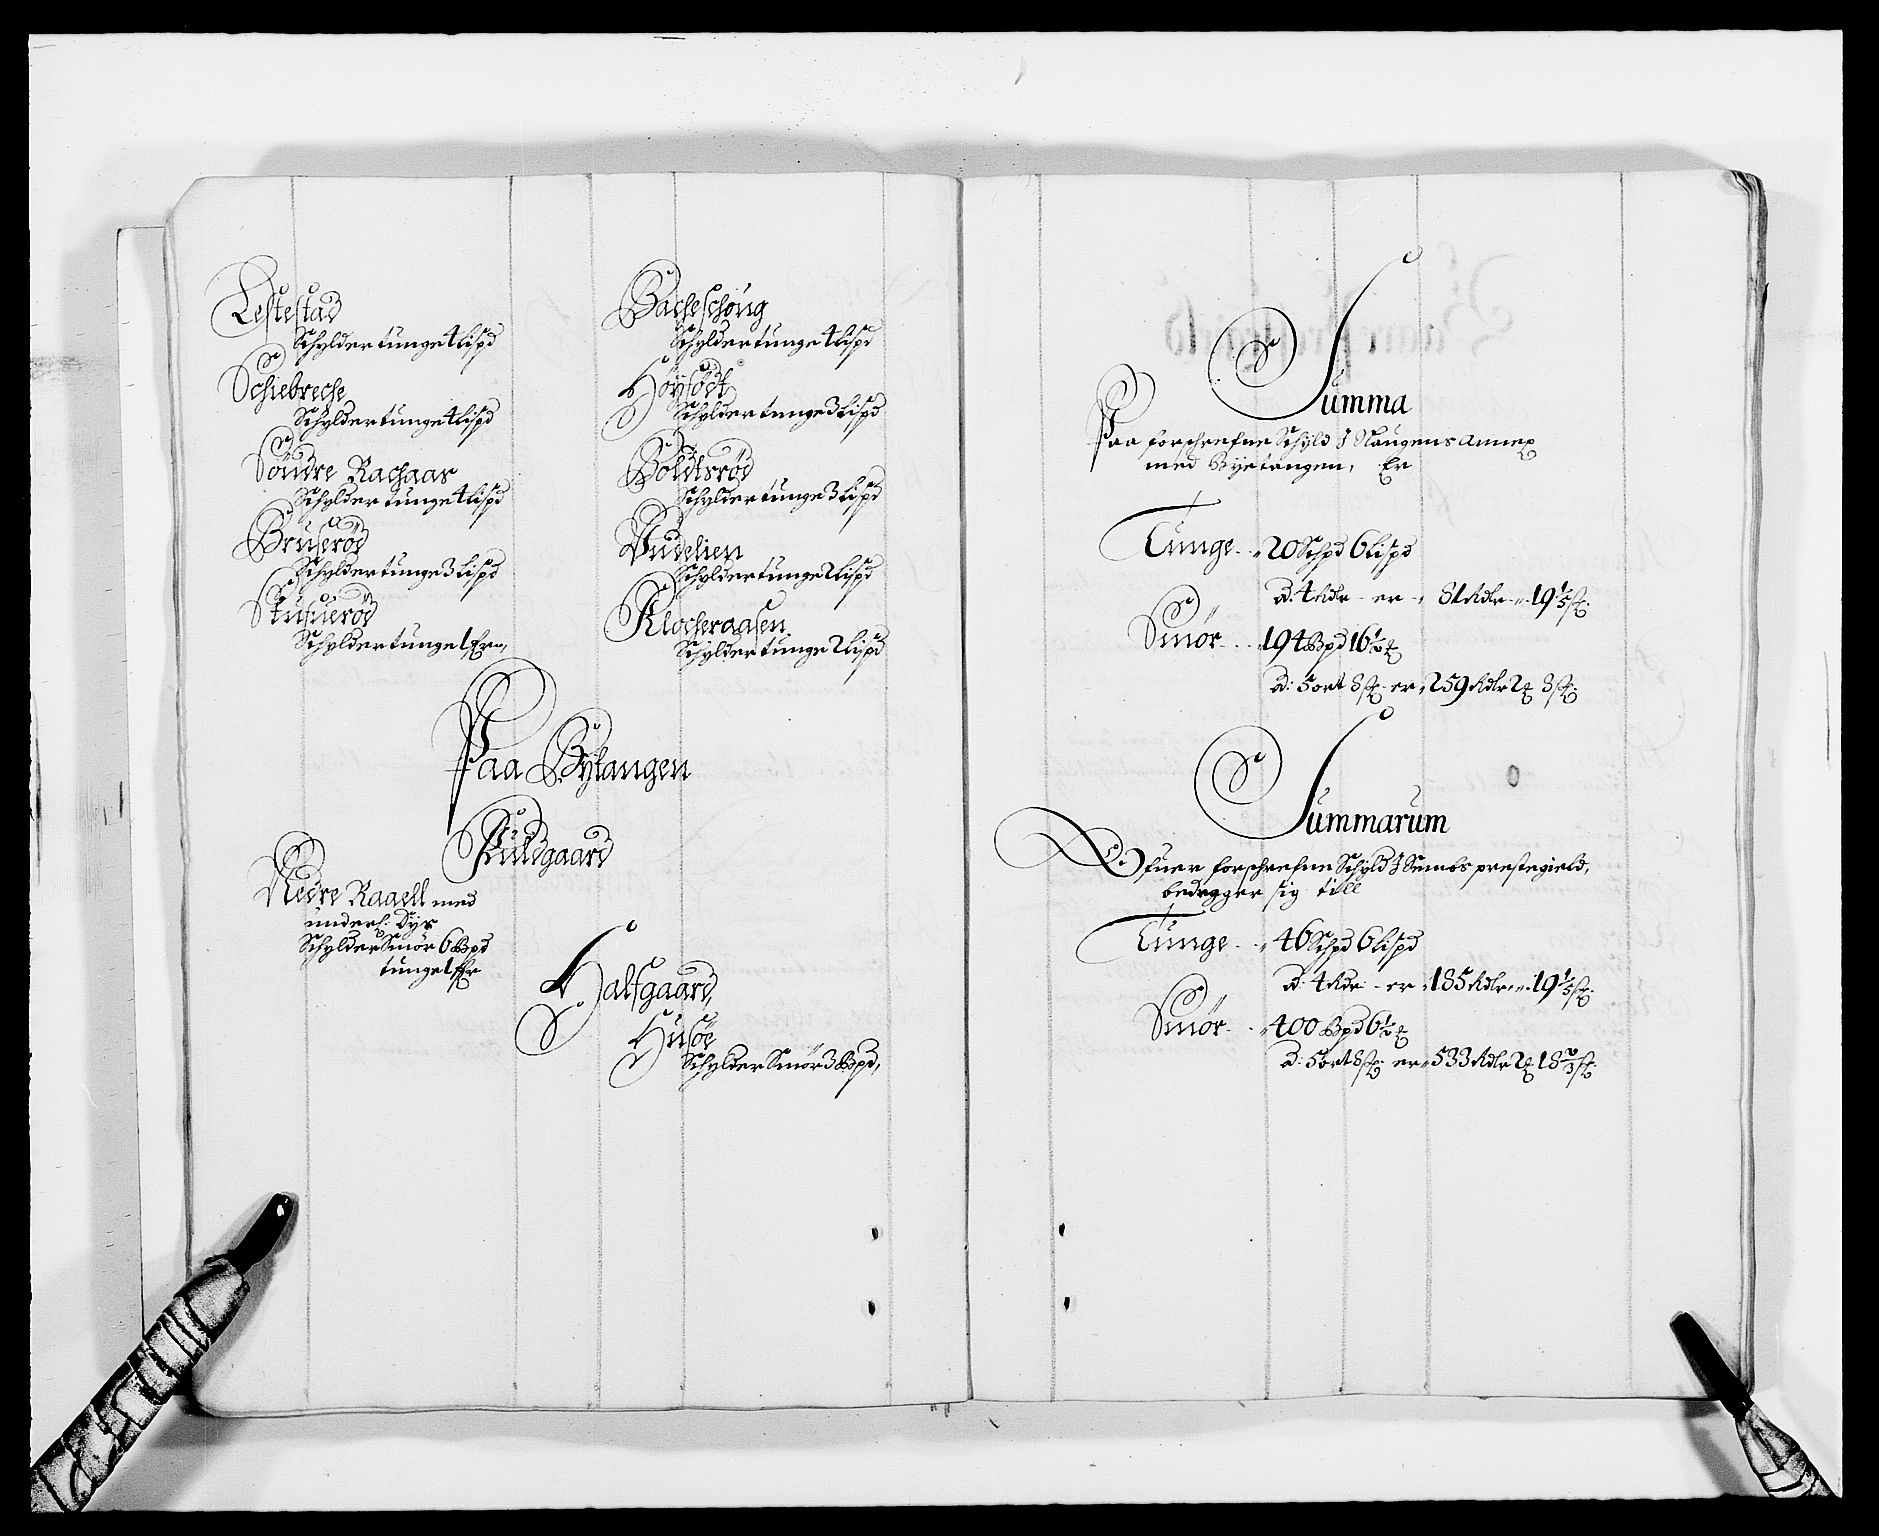 Lestestad
Schylder tunge 4 Lispd
Schiebreche
Schylder tunge 4 Lispd
Söndre Rachaas
Schylder tunge 4 Lispd
Bruseröd
Schylder tunge 3 Lispd
Schylder tunge 1
Bacheschoug
Schylder tunge 4 Lispd
Höysödt
Schylder tunge 3 Lispd
Boldtsröd
Schylder tunge 3 Lispd
Vudelien
Schylder tunge 2 Lispd
Klocheraasen
Schylder tunge 2 Lispd
Paa Bytangen
Fuldgaard
Nedre Raaell med
underl: Dyr
Schylder Smör 6 Bpd
tunge 1
Halfgaard,
Husöe
Schylder Smör 3 Bpd,
Summa
Paa forschrefne Schyld J Slaugens annex
med Byetangen, Er
Tunge - 20 Schpd 6 Lispd
a: 4 Rdr - er - 81 Rdr - 19 1/5 s.
Smör - 194 Bpd 16 1/2
a: 5 ort 8 s. er 259 Rdr 2 8 s.
Summarum
Ofuer forschrefne Schyld J Sembs prestegield,
bedragger sig till
Tunge - 46 Schpd 6 Lispd
a: 4 Rdr - er 185 Rdr - 19 1/5 s.
Smör - 400 Bpd 6 1/2
a: 5 ort 8 s. er 533 Rdr 2 18 2/3 s.